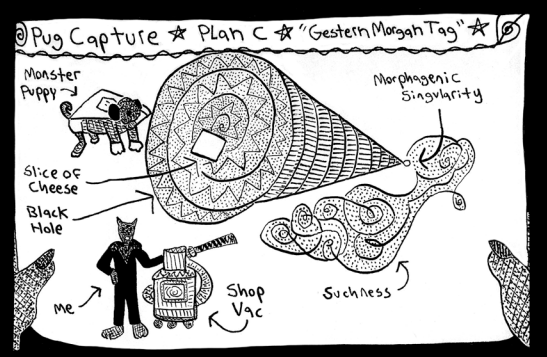 Pug Capture ☆ Plan C ☆ "Gestern Morgan Tag" ☆
Monster
Puppy
Morphagenic
Singularity
Slice of
Cheese
Black
Hole
Me
Shop
Vac
Suchness